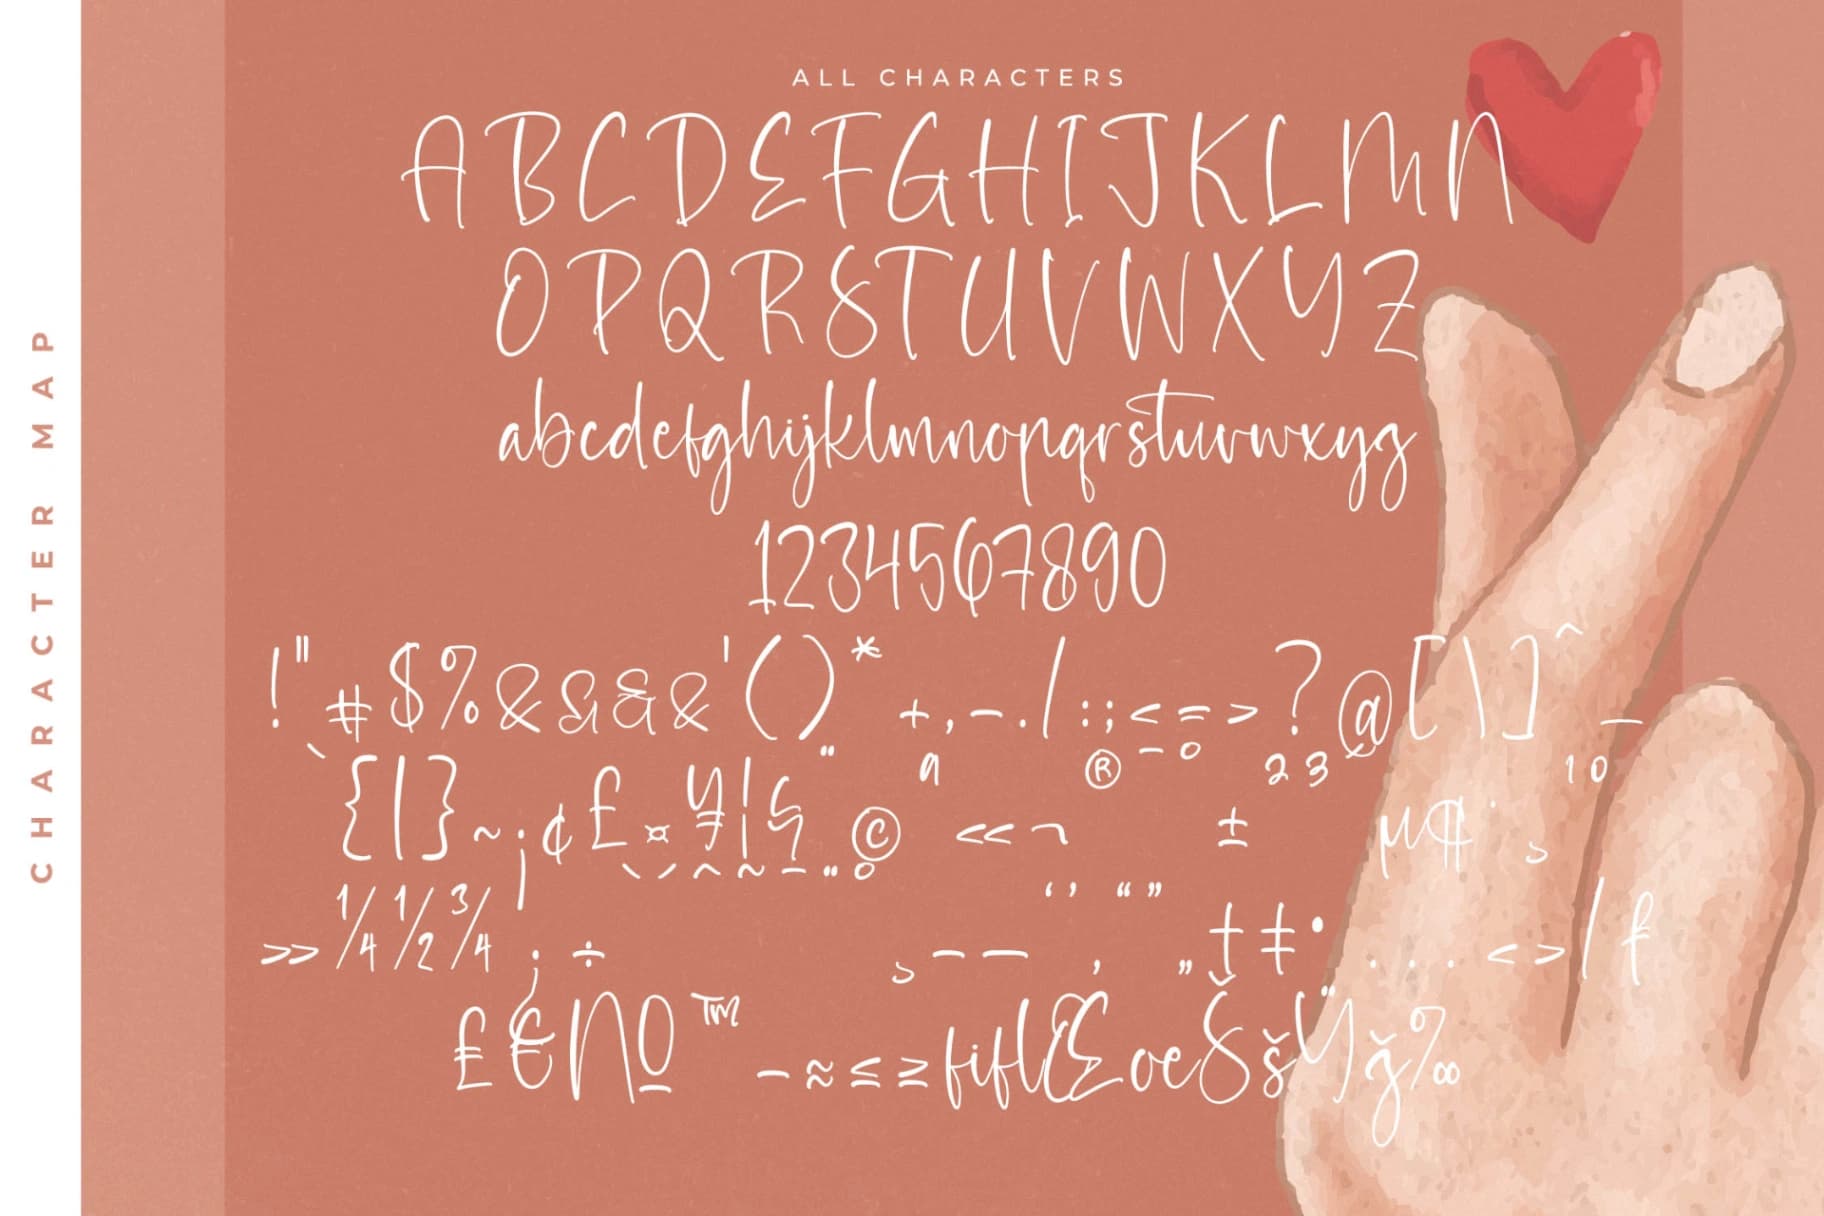 CHARACTER MAP
ALL CHARACTERS
ABCDEFGHIJKLMN
OPQRSTUVWXYZ
abcdefghijklmnopqrstuvwxyz
1234567890
!"#$%&&&&'()*+,-./:;<=>?@[\]^_
`{|}~¡¢£¤¥¦§¨©ª«¬®¯°±²³µ¶·¸¹º
»¼½¾¿÷–—‘’‚“”„†‡•…‹›⁄ƒ
₤€№™−≈≤≥fiflŒœŠšŸž‰